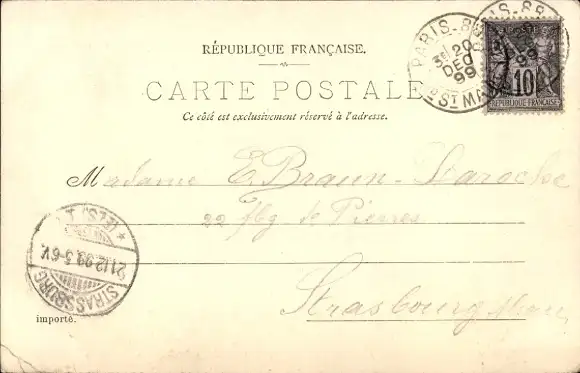 RÉPUBLIQUE FRANÇAISE.
CARTE POSTALE
Ce côté est exclusivement réservé à l'adresse.
PARIS-88
20
DEC
99
ST MA
10
REPUBLIQUE FRANÇAISE
Madame E. Braun-Laroche
22 fbg de Pierres
Strasbourg
STRASSBURG
21.12.99.5-6V.
* (ELS.) 1
importé.